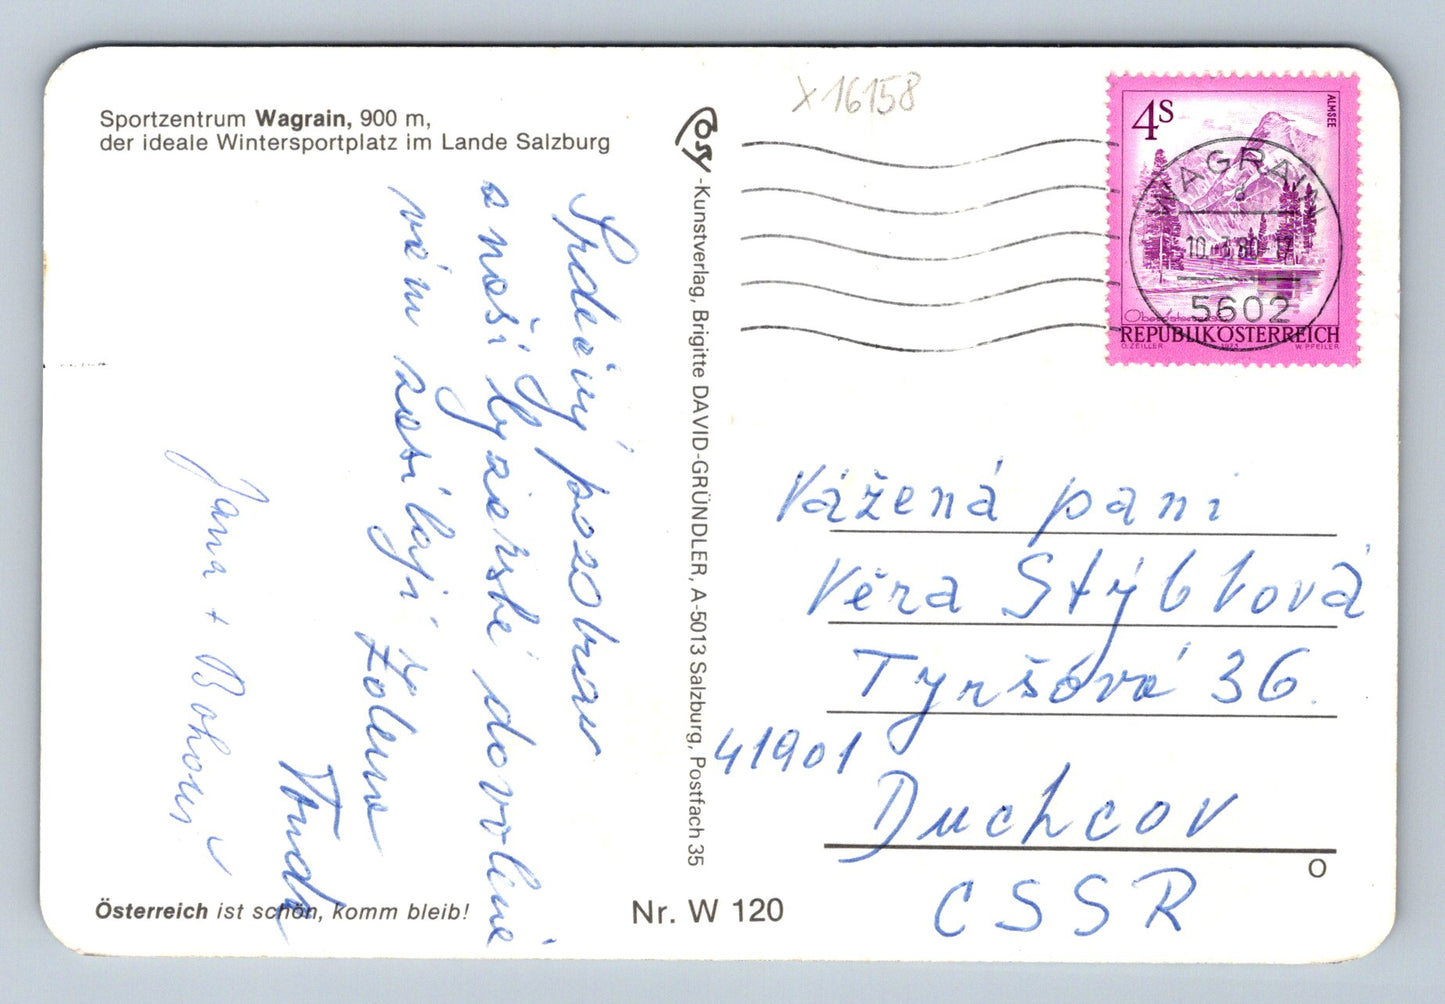 Sportzentrum Wagrain, 900 m,
der ideale Wintersportplatz im Lande Salzburg
x16158
Cosy-Kunstverlag, Brigitte DAVID-GRÜNDLER, A-5013 Salzburg, Postfach 35
4S
ALMSEE
REPUBLIK ÖSTERREICH
O. ZEILLER 1973 W. PFEILER
WAGRAIN
10.-3.80-17
5602
Srdečný pozdrav
z naší lyžařské dovolené
vám zasílají
Jana + Bohouš
Vážená paní
Věra Stýblová
Tyršóvá 36.
41901
Duchcov
CSSR
O
Österreich ist schön, komm bleib!
Nr. W 120